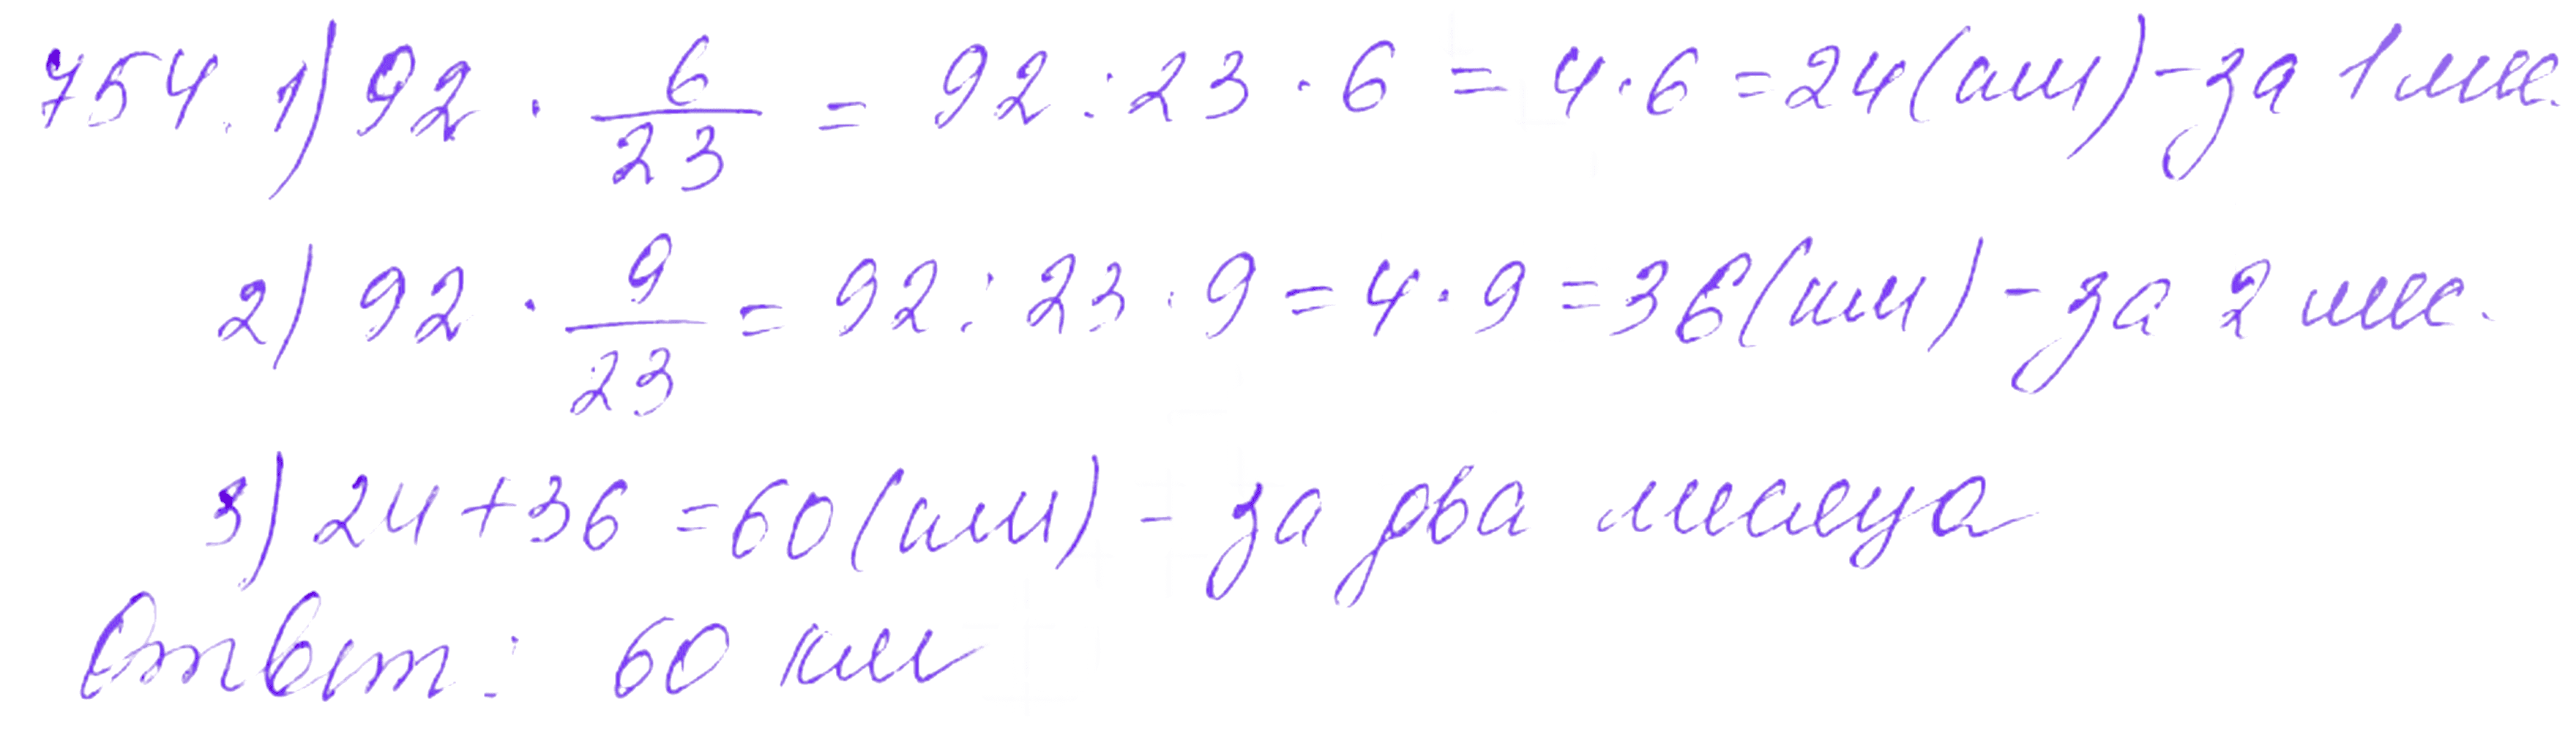 754. 1) 92 · 6/23 = 92 : 23 · 6 = 4 · 6 = 24 (км) - за 1 мес.
2) 92 · 9/23 = 92 : 23 · 9 = 4 · 9 = 36 (км) - за 2 мес.
3) 24 + 36 = 60 (км) - за два месяца
Ответ: 60 км